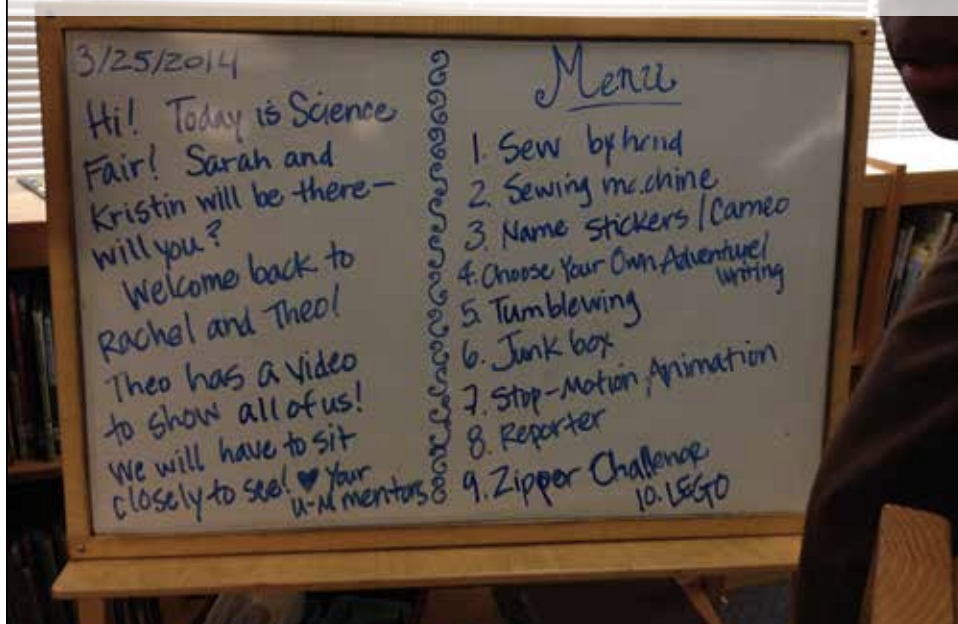 3/25/2014
Hi! Today is Science
Fair! Sarah and
Kristin will be there—
will you?
Welcome back to
Rachel and Theo!
Theo has a video
to show all of us!
We will have to sit
closely to see! ♥ Your
U-M mentors
Menu
1. Sew by hand
2. Sewing machine
3. Name Stickers / Cameo
4. Choose Your Own Adventure/
writing
5. Tumblewing
6. Junk box
7. Stop-Motion Animation
8. Reporter
9. Zipper Challenge
10. LEGO